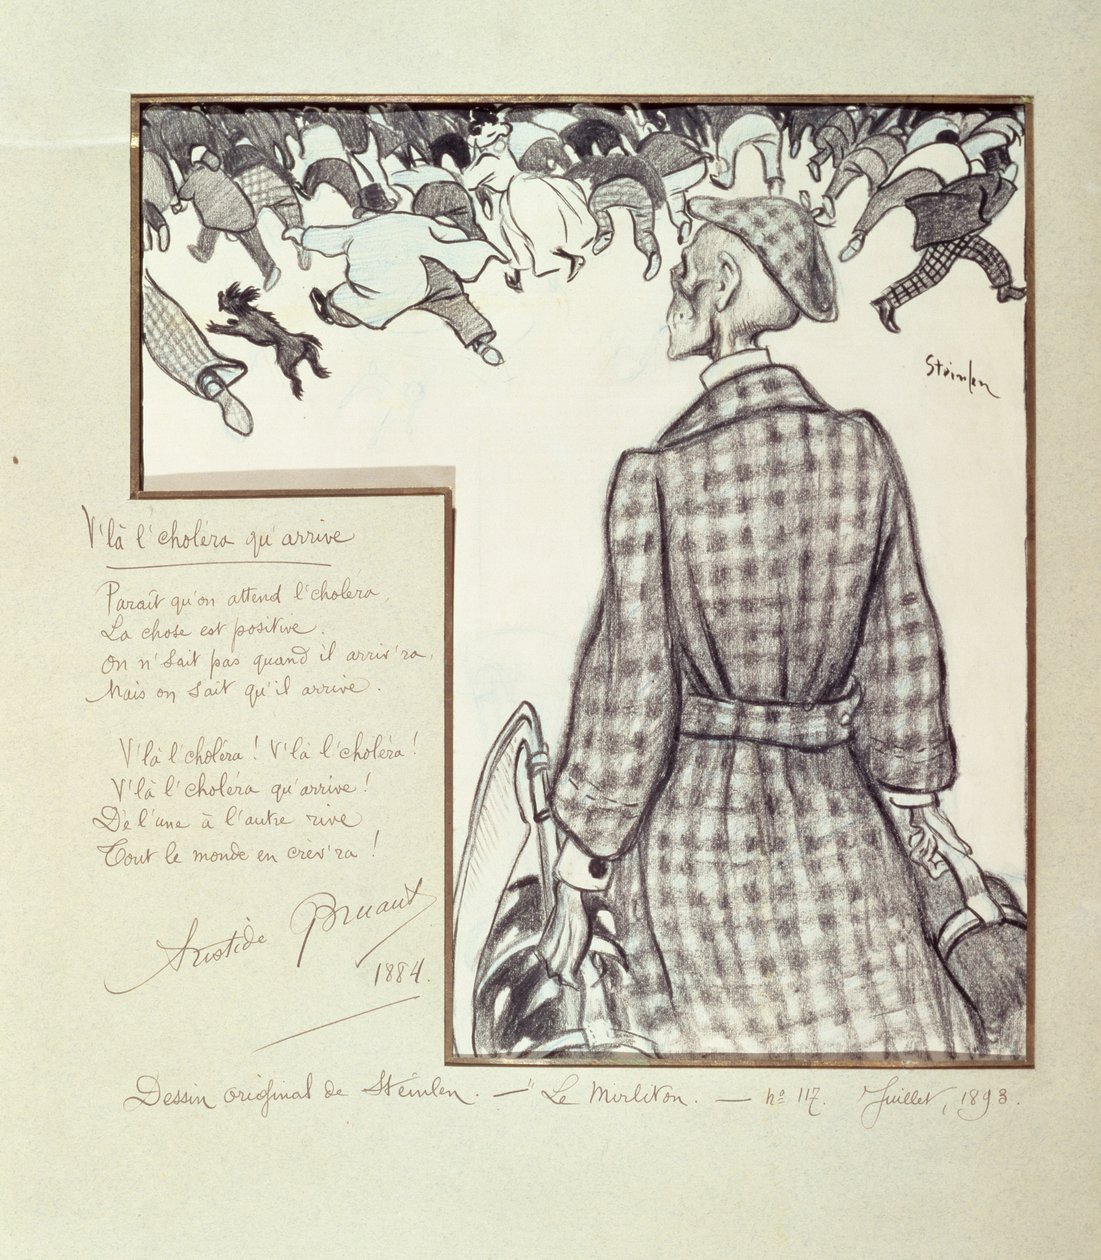 Steinlen
V'là l'choléra qu'arrive
Paraît qu'on attend l'choléra,
La chose est positive.
On n'sait pas quand il arriv'ra,
Mais on sait qu'il arrive.
V'là l'choléra ! V'là l'choléra !
V'là l'choléra qu'arrive !
De l'une à l'autre rive
Tout le monde en crèv'ra !
Aristide Bruant
1884.
Dessin original de Steinlen. — "Le Mirliton. — no 117. Juillet, 1893.